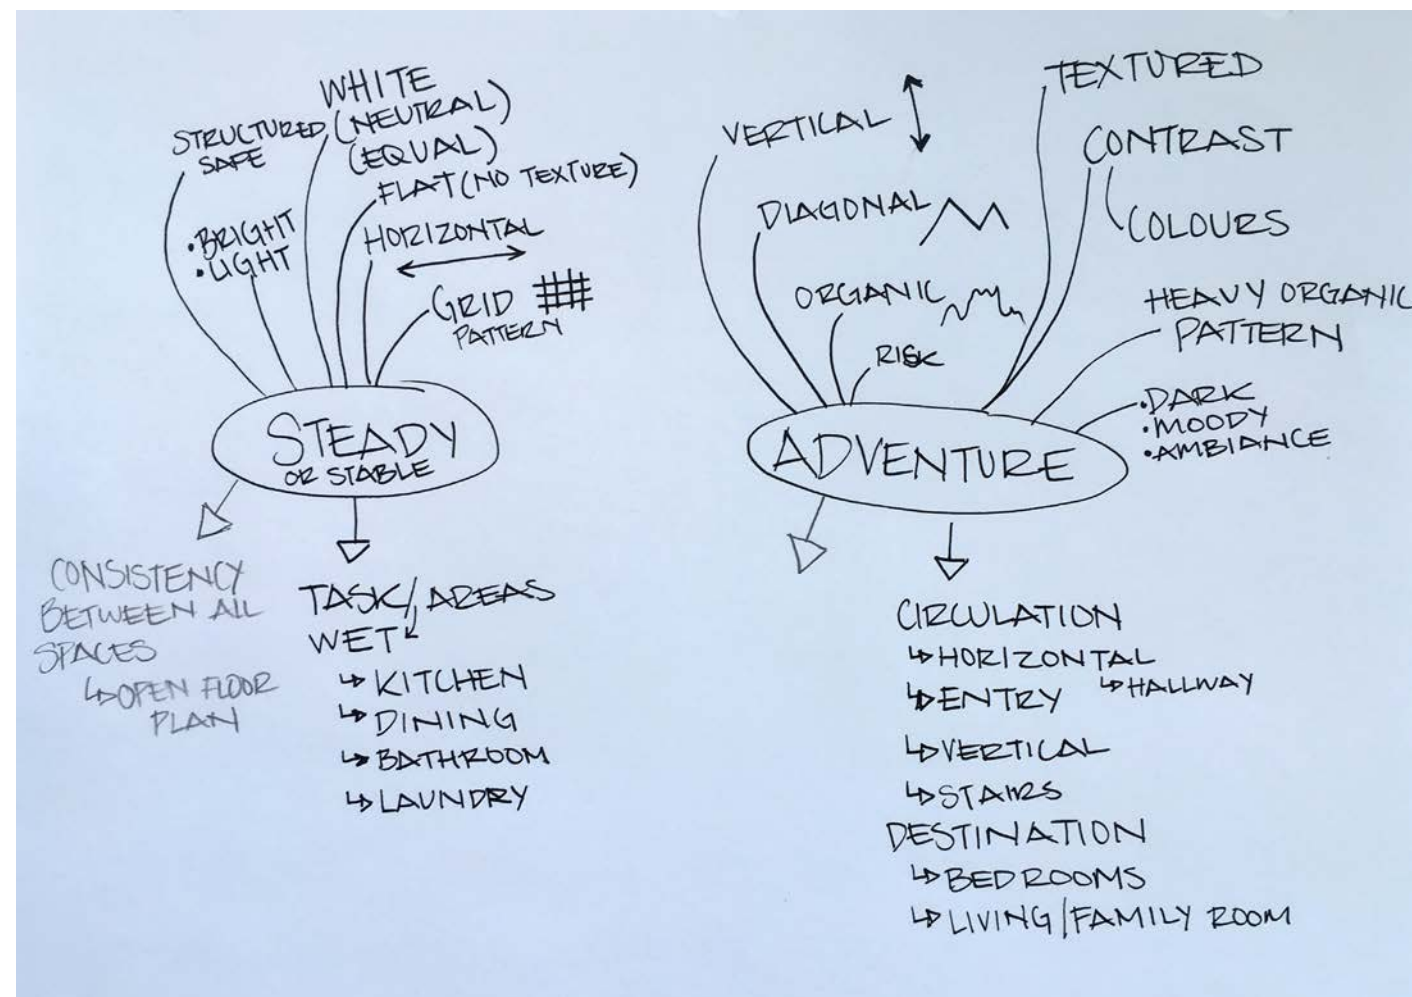 WHITE
(NEUTRAL)
(EQUAL)
STRUCTURED
SAFE
FLAT (NO TEXTURE)
•BRIGHT
•LIGHT
HORIZONTAL
GRID
PATTERN
STEADY
OR STABLE
CONSISTENCY
BETWEEN ALL
SPACES
OPEN FLOOR
PLAN
TASK/AREAS
WET
KITCHEN
DINING
BATHROOM
LAUNDRY
VERTICAL
DIAGONAL
ORGANIC
RISK
TEXTURED
CONTRAST
COLOURS
HEAVY ORGANIC
PATTERN
•DARK
•MOODY
•AMBIANCE
ADVENTURE
CIRCULATION
HORIZONTAL
HALLWAY
ENTRY
VERTICAL
STAIRS
DESTINATION
BEDROOMS
LIVING/FAMILY ROOM